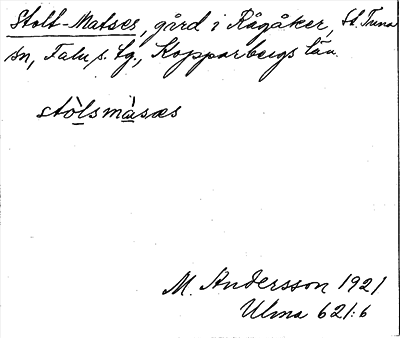 Stolt-Matses, gård i Rågåker, St. Tuna
sn, Falu s. tg., Kopparbergs län
stòlsmàsæs
M. Andersson 1921
Ulma 621:6